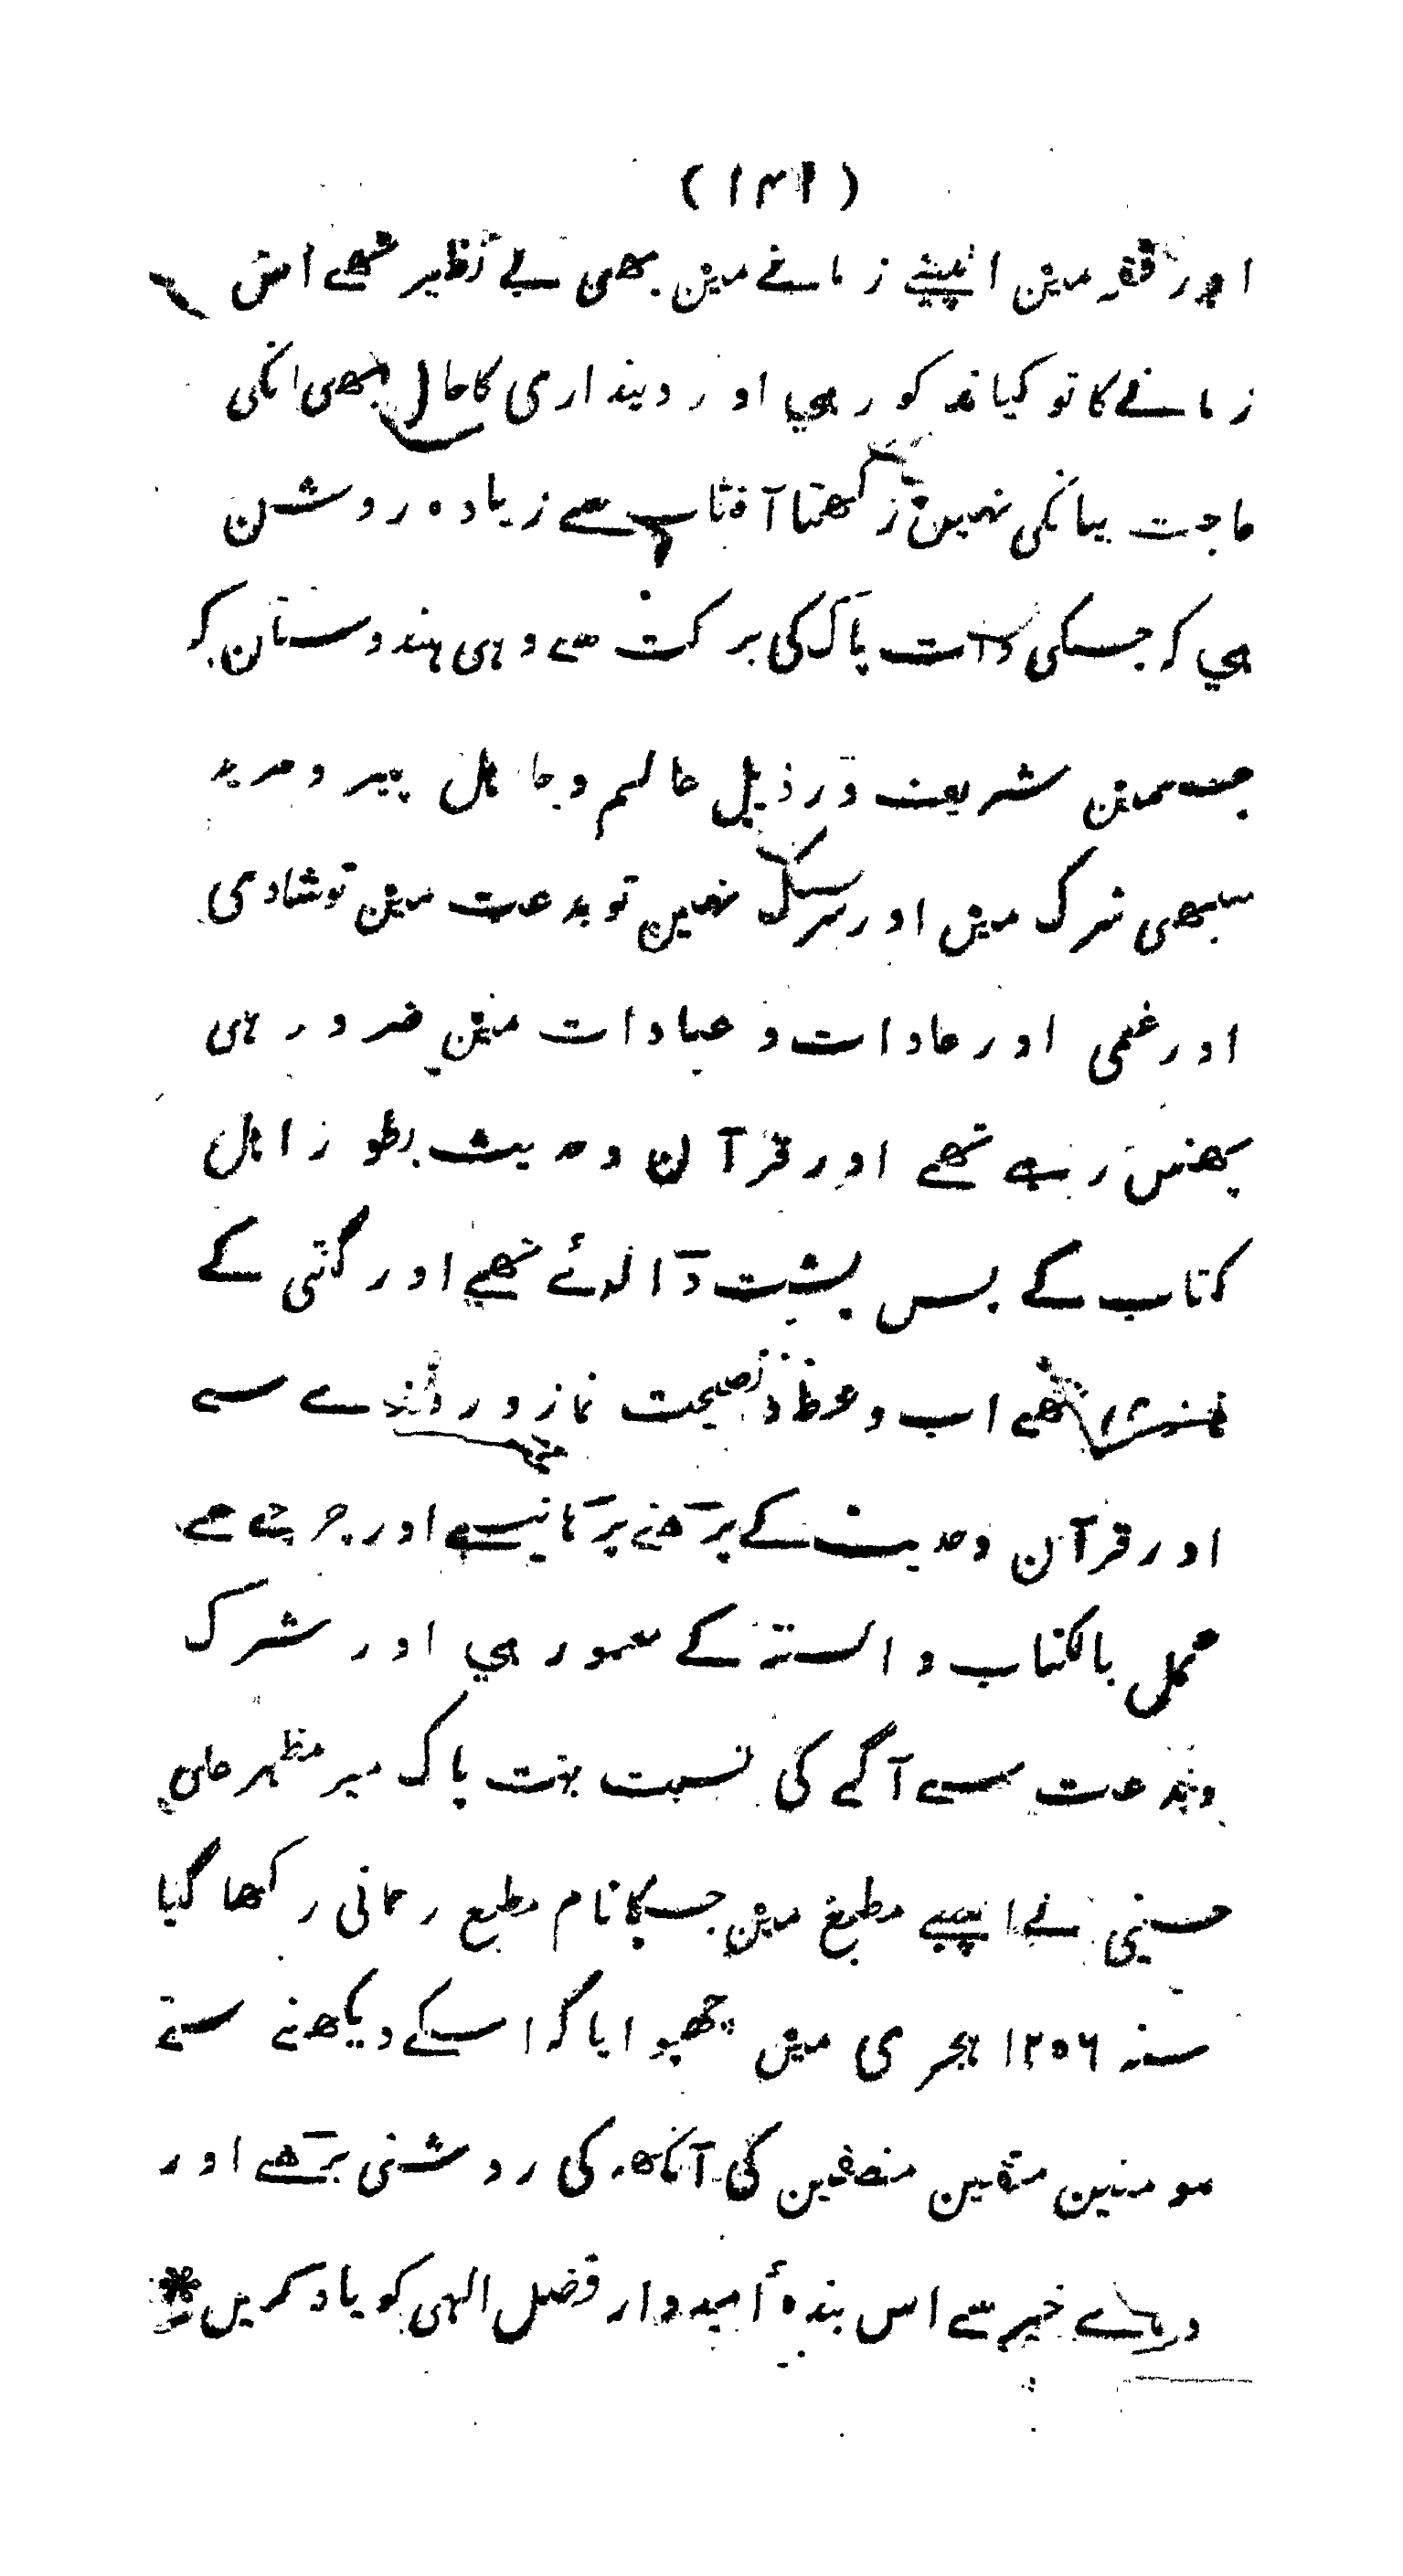 (۱۴۱)
اور فقہ مین اپنے زمانے مین بھی بے نظیر تھے اس
زمانے کا تو کیا مذکور ہی اور دینداری کا حال بھی انکی
حاجت بیانکی نہین رکھتا آفتاب سے زیادہ روشن
ہی کہ جسکی ذات پاک کی برکت سے وہی ہندوستان کہ
جسمین شریف و رذیل عالم و جاہل پیر و مرید
سبھی شرک مین اور شرک نہین تو بدعت مین تو شادی
اور غمی اور عادات و عبادات مین ضرور ہی
پھنس رہے تھے اور قرآن و حدیث بطور اہل
کتاب کے پس پشت ڈالدئے تھے اور گنتی کے
تھے اب وعظ و نصیحت نماز و روزے سے
اور قرآن و حدیث کے پڑھنے پڑھانیسے اور چرچے سے
عمل بالکتاب والسنۃ کے معمور ہی اور شرک
و بدعت سے آگے کی نسبت بہت پاک میر مظہر علی
حسینی نے اپنے مطبع مین جسکا نام مطبع رحمانی رکھا گیا
سنہ ۱۲۵۶ ہجری مین چھپوایا کہ اسکے دیکھنے سے
مومنین متقین منصفین کی آنکھہ کی روشنی بڑھے اور
دعاے خیر سے اس بندۂ امیدوار فضل الہی کو یاد کرین *